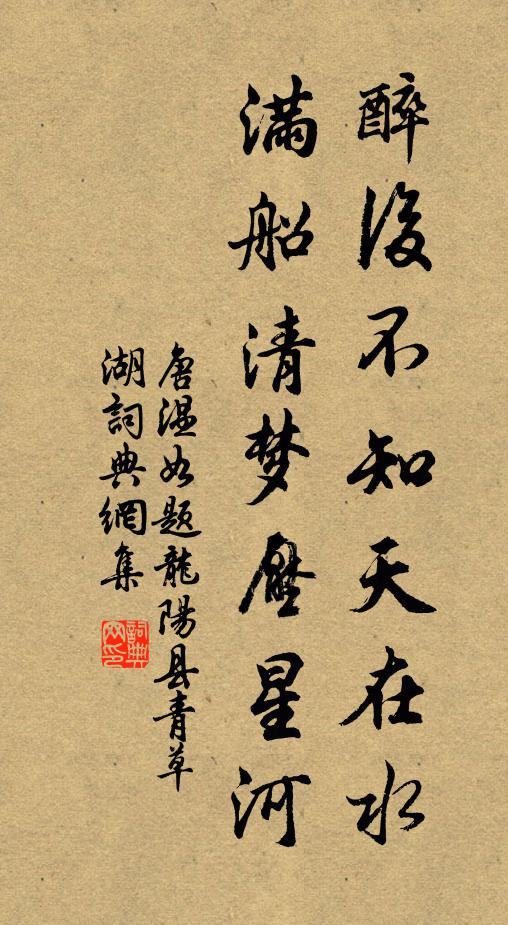 醉後不知天在水
滿船清梦壓星河
唐温如题龍陽县青草
湖詞典網集
詞典
网印